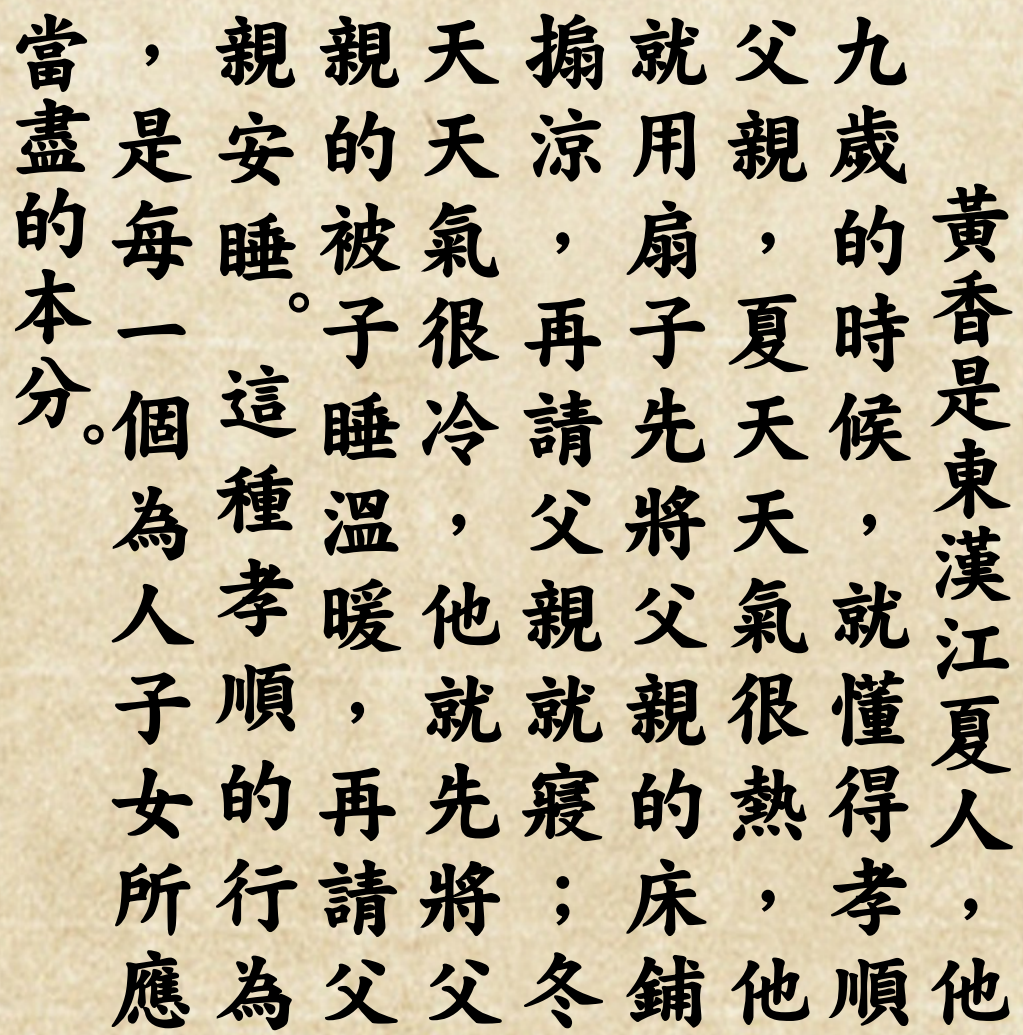 黃香是東漢江夏人，他
九歲的時候，就懂得孝順
父親，夏天天氣很熱，他
就用扇子先將父親的床鋪
搧涼，再請父親就寢；冬
天天氣很冷，他就先將父
親的被子睡溫暖，再請父
親安睡。這種孝順的行為
，是每一個為人子女所應
當盡的本分。